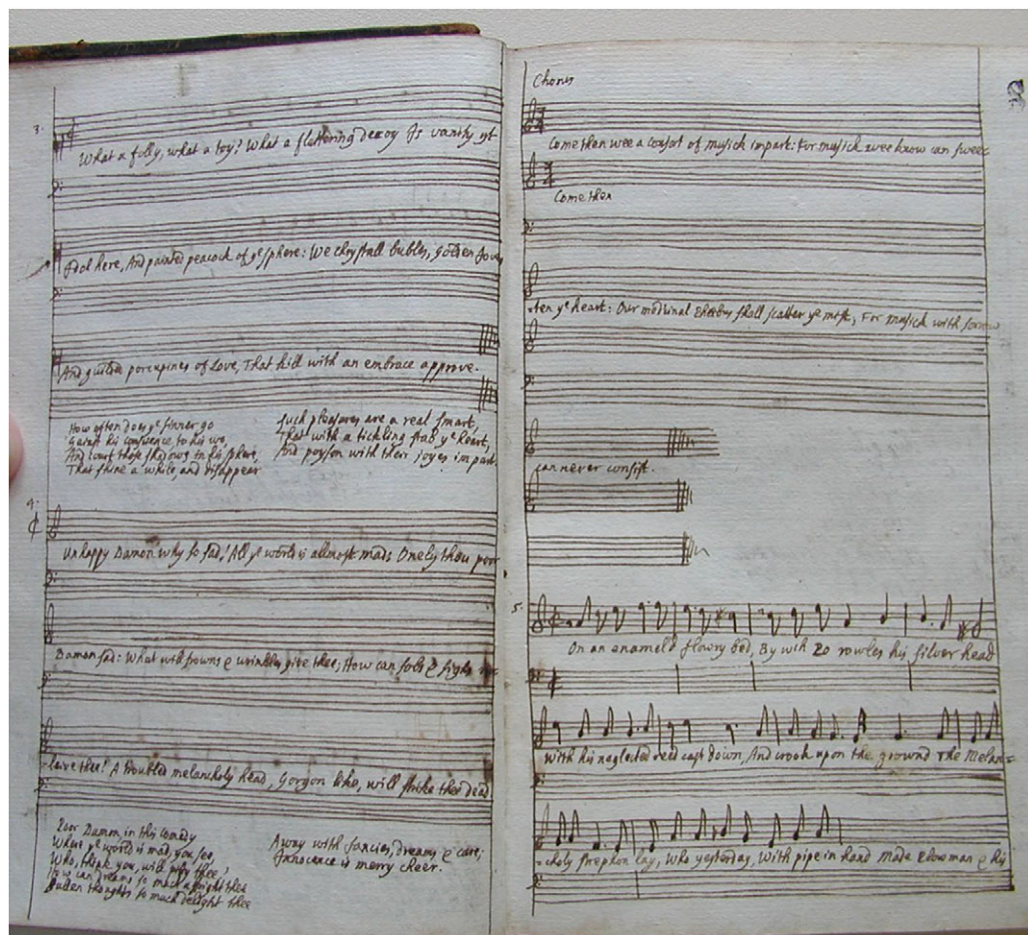 3.
What a folly, what a toy! What a flattering decoy Is vanity yt
Idol here, And painted peacock of ye sphere: We chrystall bubles, golden
And guilded porcupines of Love, That kill with an embrace approve.
How often does ye sinner go
Gainst his conscience, to his wo,
And court those shadows in his sphere,
That shine a while, and disappear
Such pleasures are a real smart,
That with a tickling stab ye heart,
And poyson with their joyes impart.
4.
Unhappy Damon why so sad! All ye world is allmost mad: Onely thou poor
Damon sad: What will frowns & wrinkles give thee; How can sobs & sighs
-leive thee! A troubled melancholy head, Gorgon like, will strike thee dead
Poor Damon, in this Comedy
Where ye world is mad, you see,
Who, think you, will pity thee;
How can dreams so much affright thee
Sudden thoughts so much delight thee
Away with fancies, dreams & care;
Innocence is merry cheer.
Chorus
Come then wee a consort of musick impart: For musick wee know can sweet
Come then
-ten ye heart: Our shall scatter ye mist, For Musick with sorrow
can never consist.
5.
On an enameld flowry bed, By wch Po rowles his silver head
With his neglected reed cast down, And crook upon the ground The Melan=
-choly Strephon lay, Who yesterday, With pipe in hand made Plowman & his